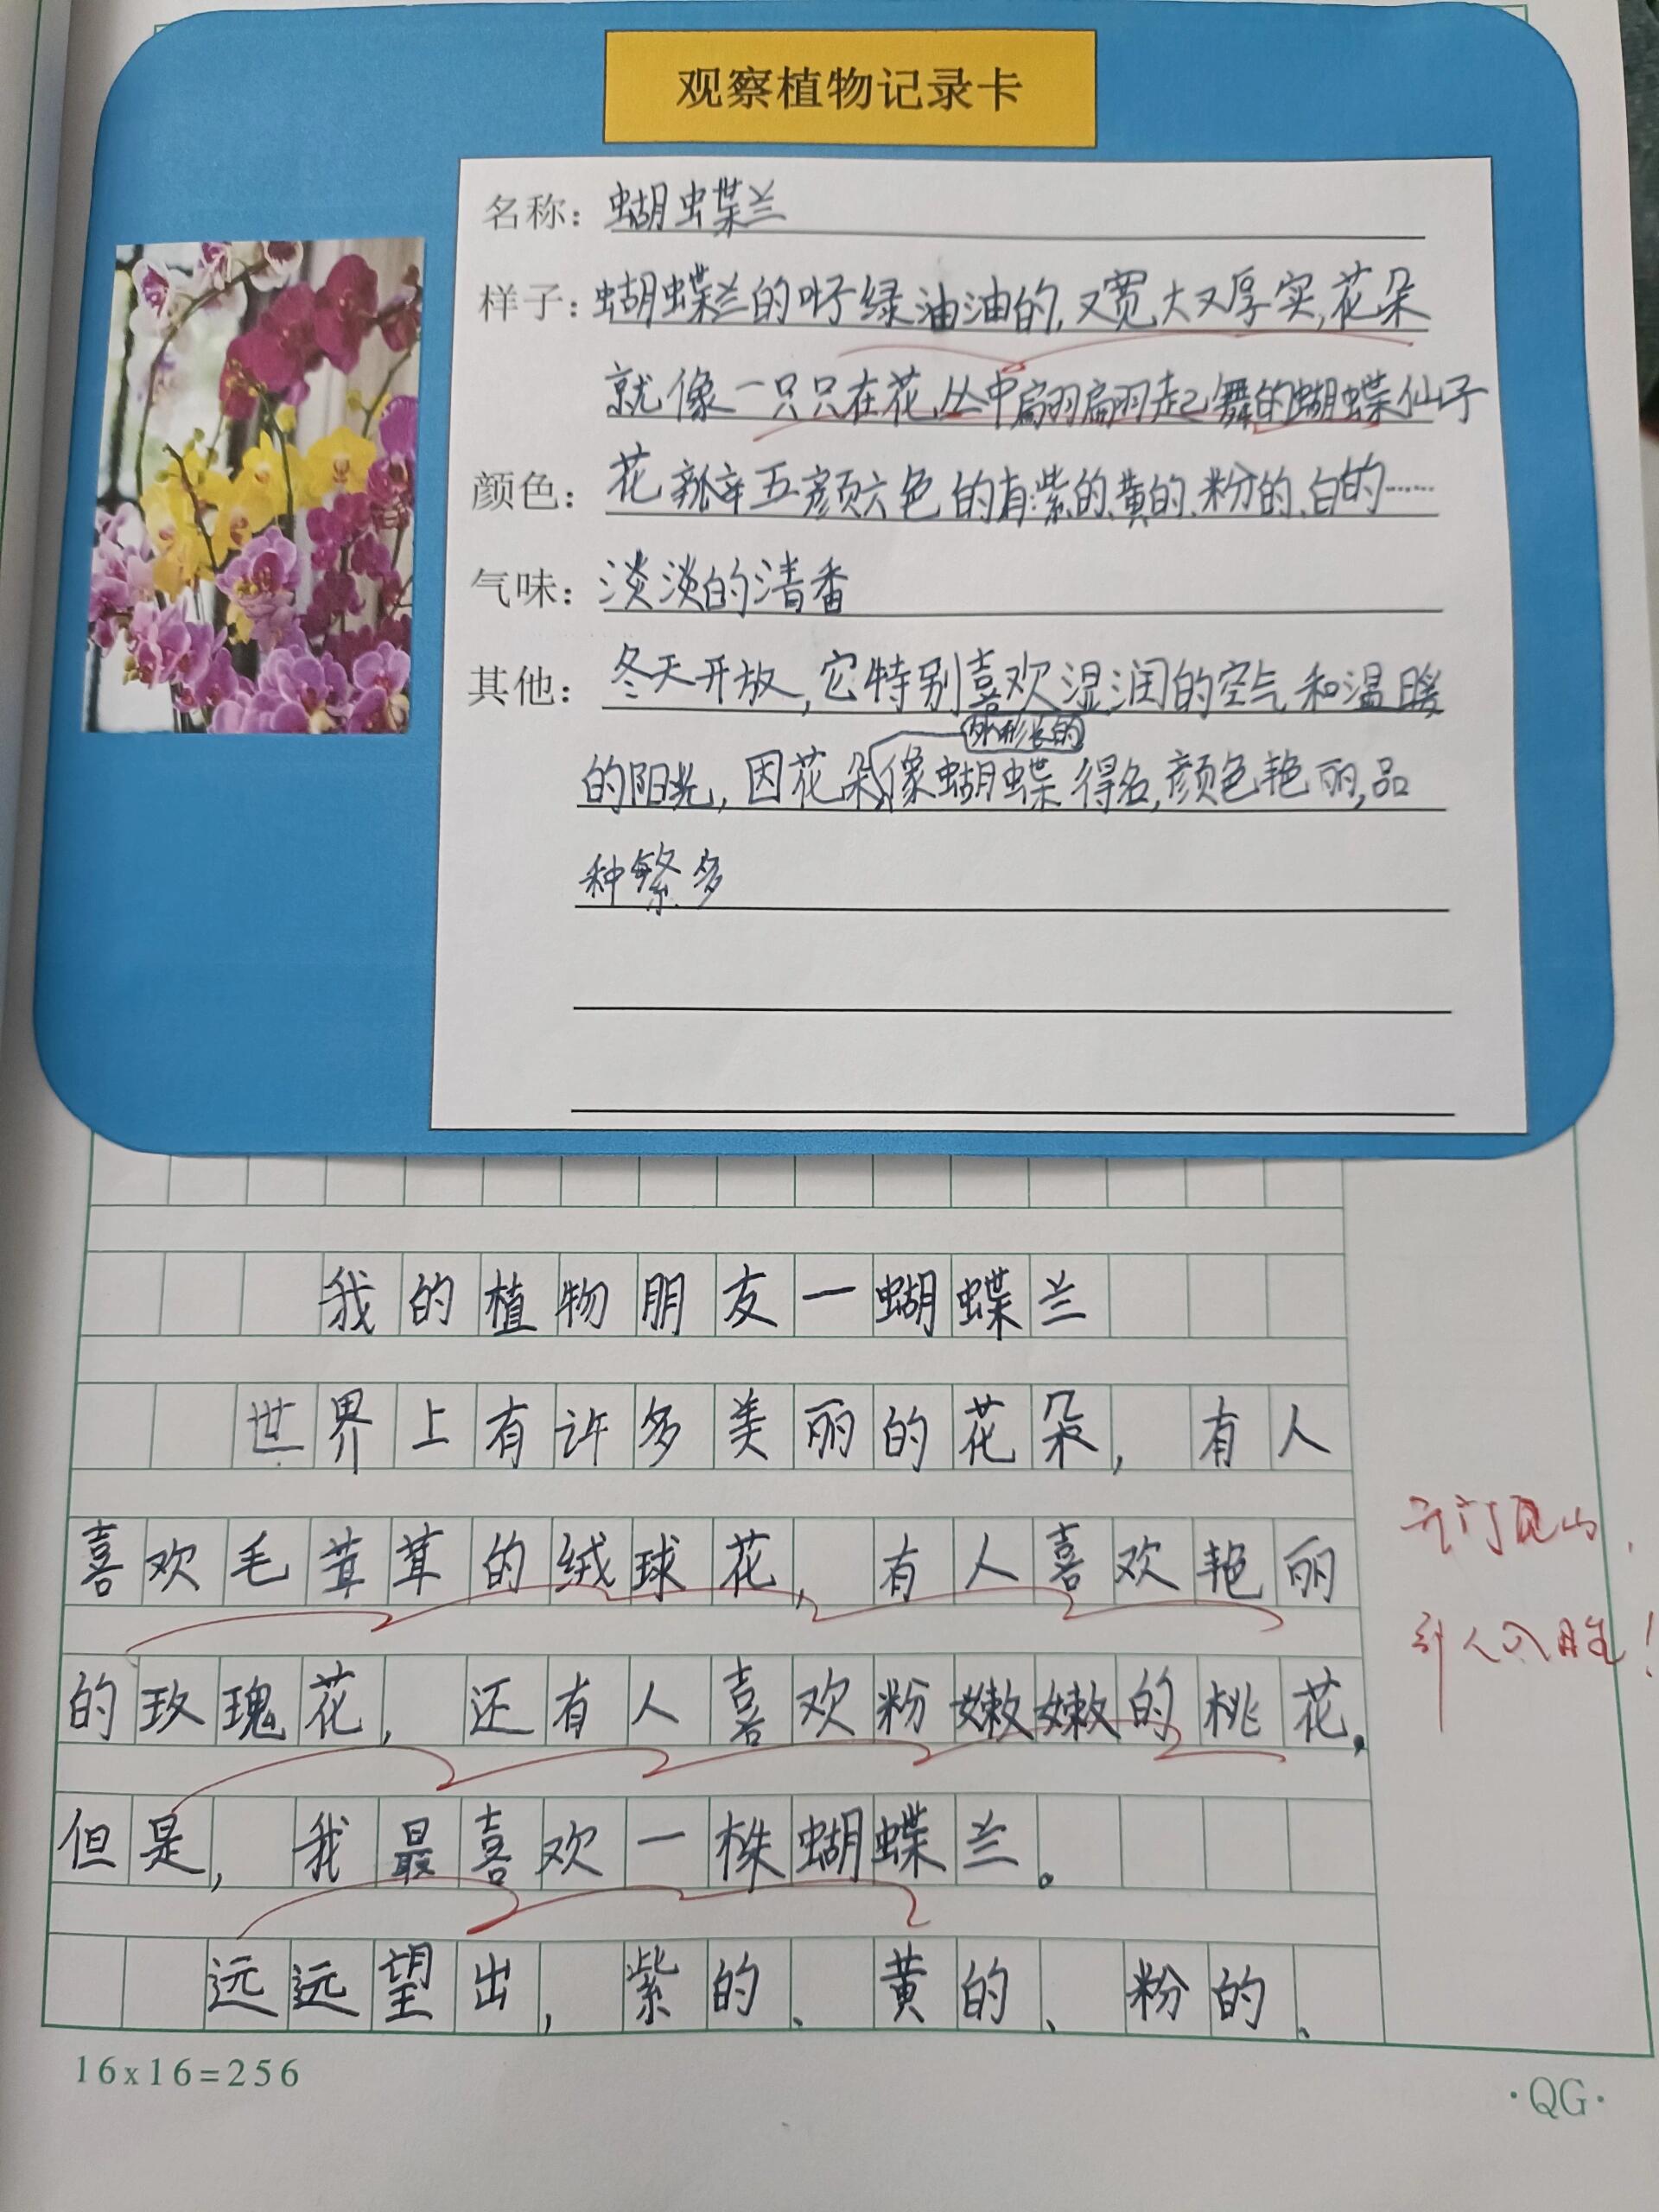 观察植物记录卡
名称：蝴蝶兰
样子：蝴蝶兰的叶子绿油油的，又宽大又厚实，花朵
就像一只只在花丛中扁羽扁羽起舞的蝴蝶仙子
颜色：花瓣五颜六色的有紫的、黄的、粉的、白的……
气味：淡淡的清香
其他：冬天开放，它特别喜欢湿润的空气和温暖
外形长的
的阳光，因花朵像蝴蝶得名，颜色艳丽，品
种繁多
我的植物朋友一蝴蝶兰
世界上有许多美丽的花朵，有人
喜欢毛茸茸的绒球花，有人喜欢艳丽
开门见山，
的玫瑰花，还有人喜欢粉嫩嫩的桃花。
引人入胜！
但是，我最喜欢一株蝴蝶兰。
远远望出，紫的、黄的、粉的、
16x16=256
·QG·